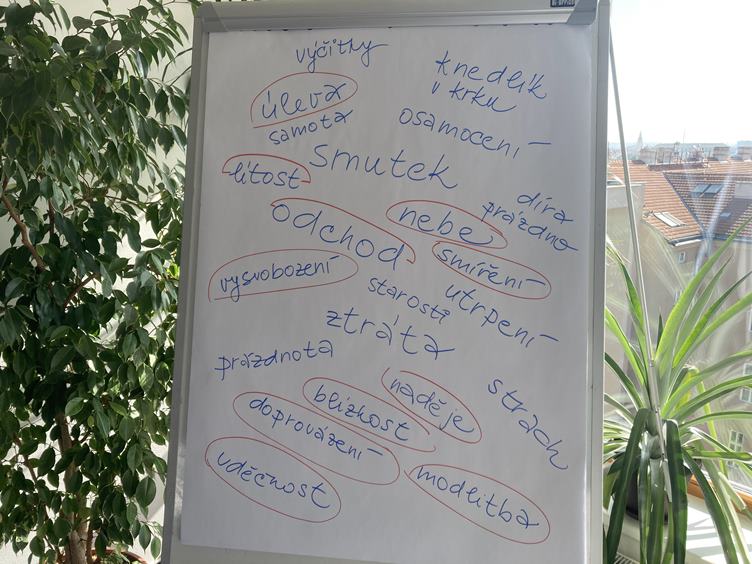 výčitky
knedlík
v krku
úleva
samota
osamocení
smutek
lítost
díra
prázdno
odchod
nebe
smíření
vysvobození
starosti
utrpení
ztráta
prázdnota
naděje
strach
blízkost
doprovázení
vděčnost
modlitba